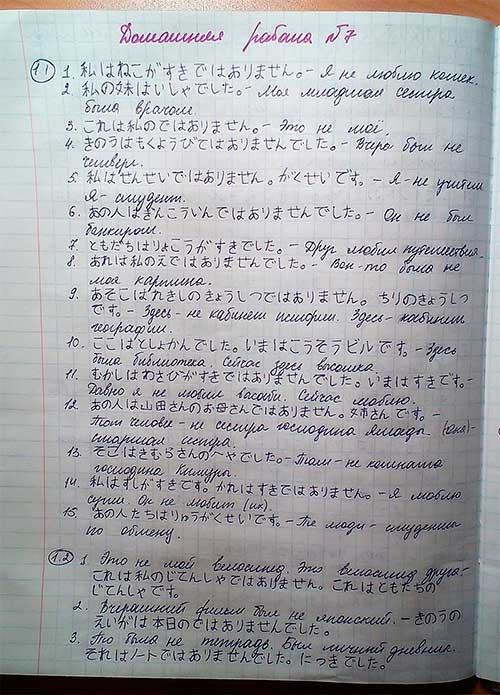 Домашняя работа №7
1.1 1. 私はねこがすきではありません。- Я не люблю кошек.
2. 私の妹はいしゃでした。- Моя младшая сестра
была врачом.
3. これは私のではありません。- Это не моё.
4. きのうはもくようびではありませんでした。- Вчера был не
четверг.
5. 私はせんせいではありません。がくせいです。- Я - не учитель
Я - студент.
6. あの人はぎんこういんではありませんでした。- Он не был
банкиром.
7. ともだちはりょこうがすきでした。- Друг любил путешествия.
8. あれは私のえではありませんでした。- Вон-то была не
моя картина.
9. あそこはれきしのきょうしつではありません。ちりのきょうしつ
です。- Здесь - не кабинет истории. Здесь - кабинет
географии.
10. ここはとしょかんでした。いまはこうそうビルです。- Здесь
была библиотека. Сейчас здесь высотка.
11. むかしはわさびがすきではありませんでした。いまはすきです。-
Давно я не любил васаби. Сейчас люблю.
12. あの人は山田さんのお母さんではありません。姉さんです。-
Тот человек - не сестра господина Ямады. (она) -
старшая сестра.
13. そこはきむらさんのへやでした。- Там - не комната
господина Кимуры.
14. 私はすしがすきです。かれはすきではありません。- Я люблю
суши. Он не любит (их).
15. あの人たちはりゅうがくせいです。- Те люди - студенты
по обмену.
1.2 1. Это не мой велосипед. Это велосипед друга -
これは私のじてんしゃではありません。これはともだちの
じてんしゃです。
2. Вчерашний фильм был не японский. - きのうの
えいがは本日のではありませんでした。
3. Это была не тетрадь. Был личный дневник.
それはノートではありませんでした。にっきでした。